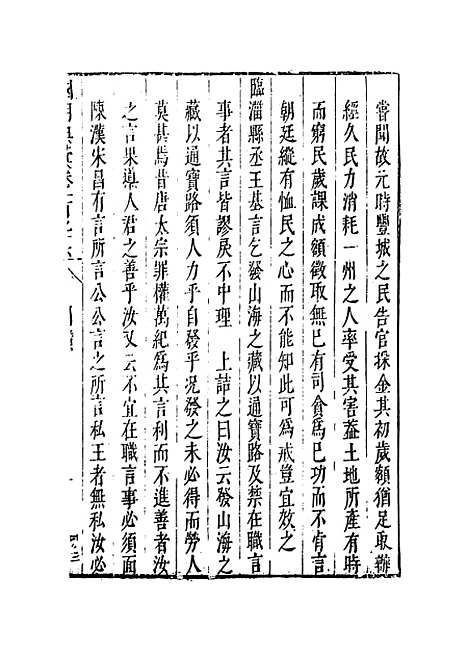 嘗聞故元時豐城之民告官採金其初歲額猶足取辦
經久民力消耗一州之人率受其害葢土地所產有時
而窮民歲課成額徵取無巳有司貪為巳功而不肯言
朝廷縱有恤民之心而不能知此可為戒豈宜效之
臨淄縣丞王基言乞發山海之藏以通寶路及禁在職言
事者其言皆謬戾不中理　上詰之曰汝云發山海之
藏以通寶路須人力乎自發乎况發之未必得而勞人
莫甚焉昔唐太宗罪權萬紀為其言利而不進善者汝
之言果導人君之善乎汝又云不宜在職言事必須面
陳漢宋昌有言所言公公言之所言私王者無私汝必